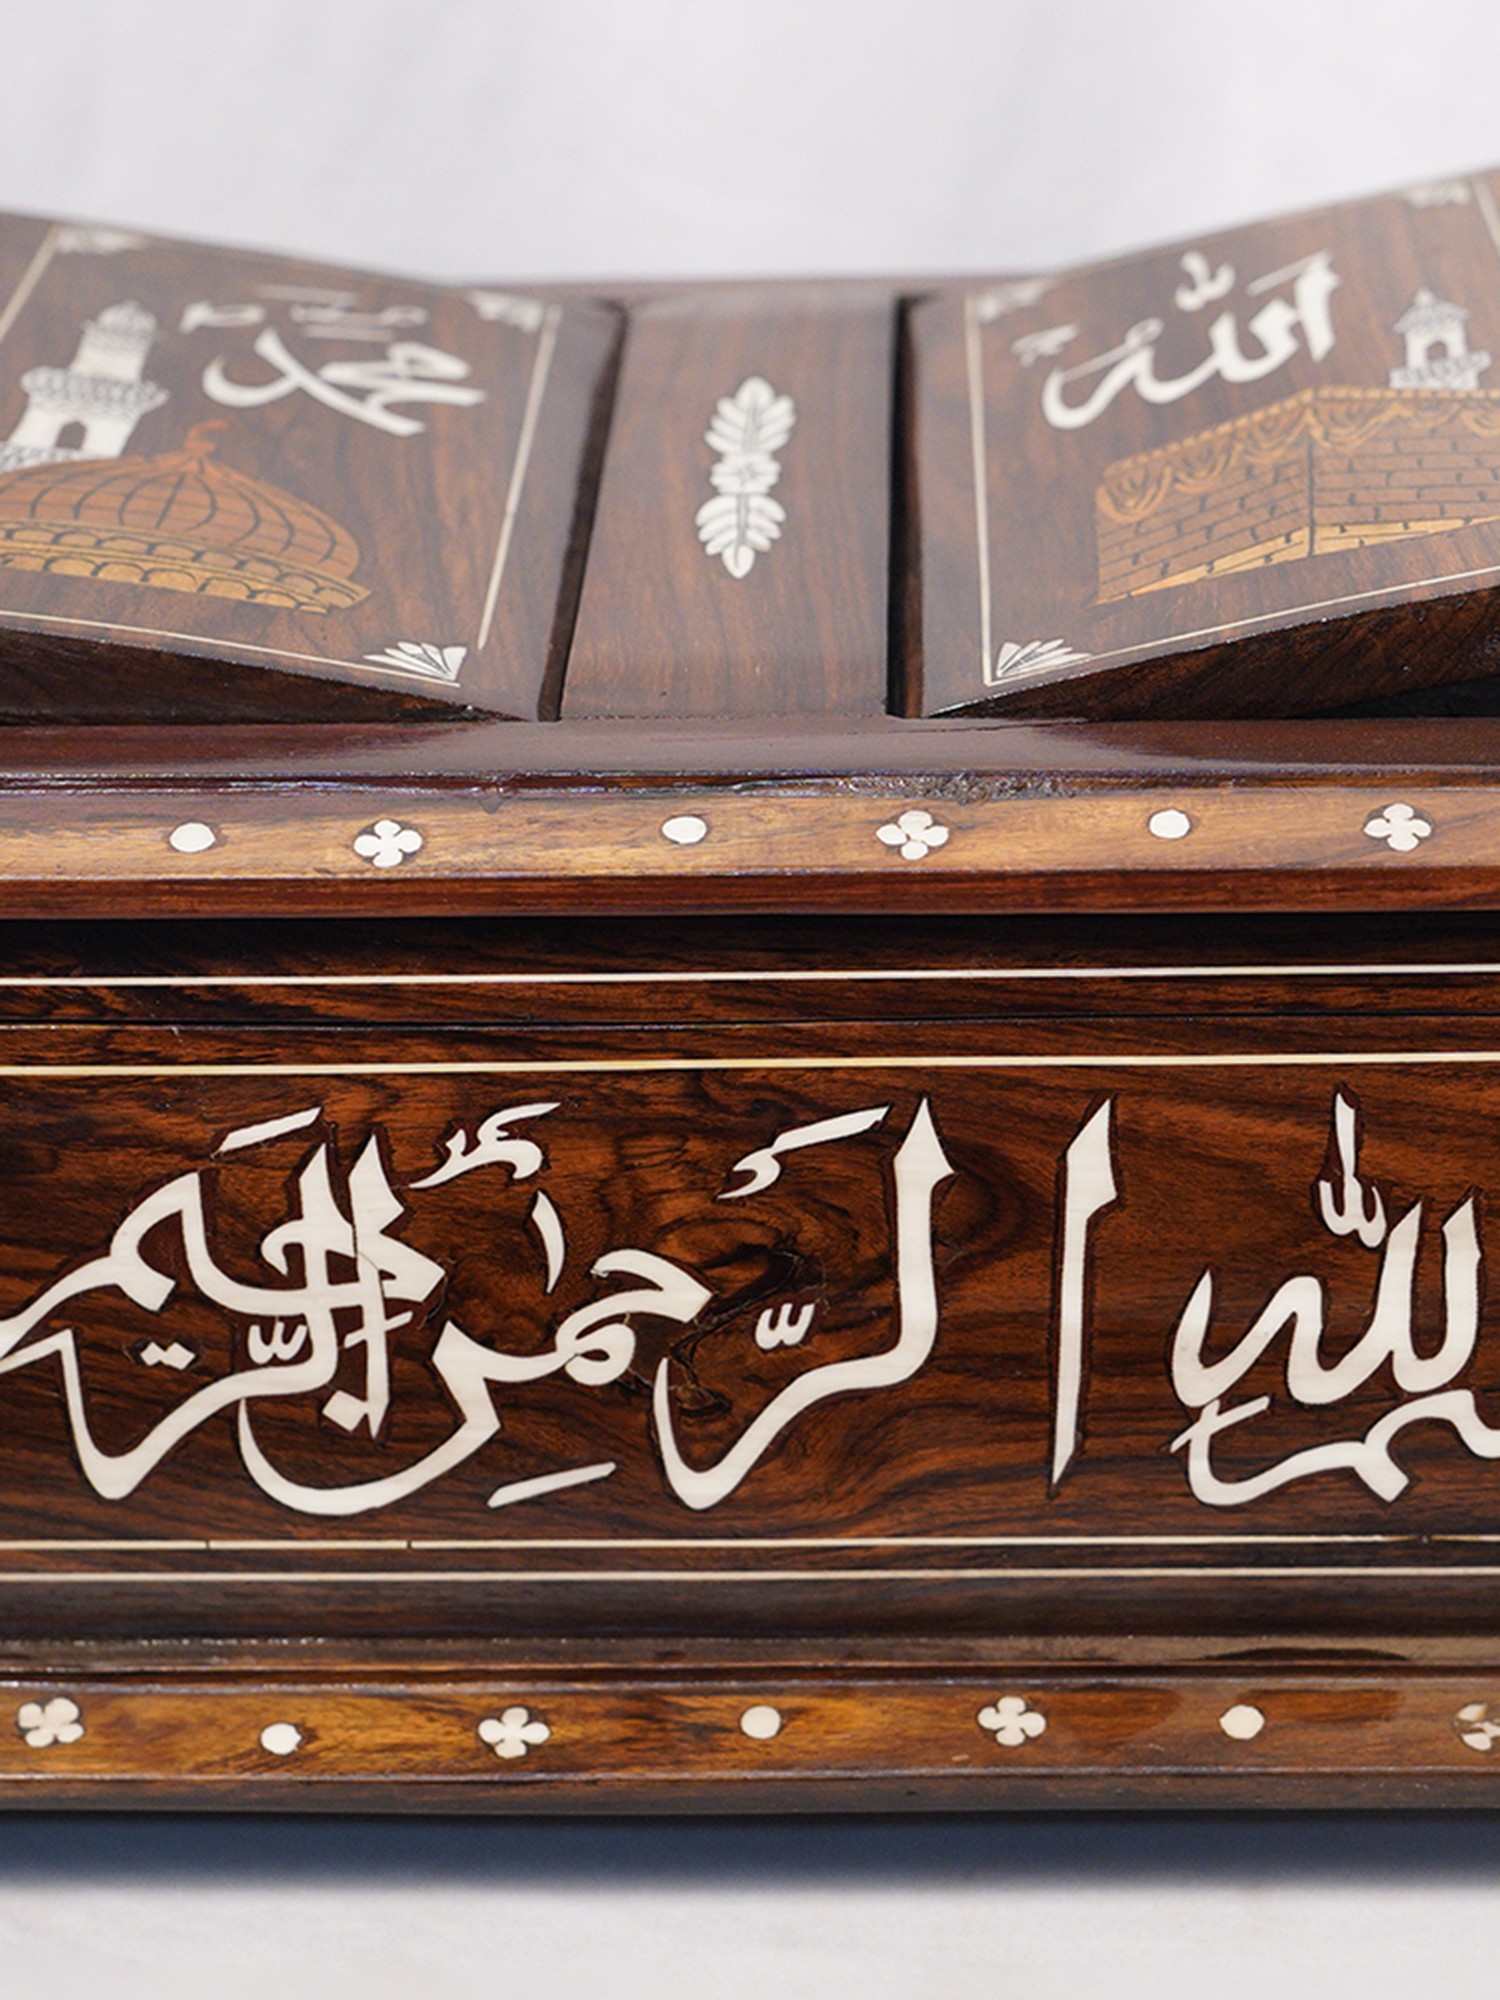 الله
محمد
بسم الله الرحمن الرحيم